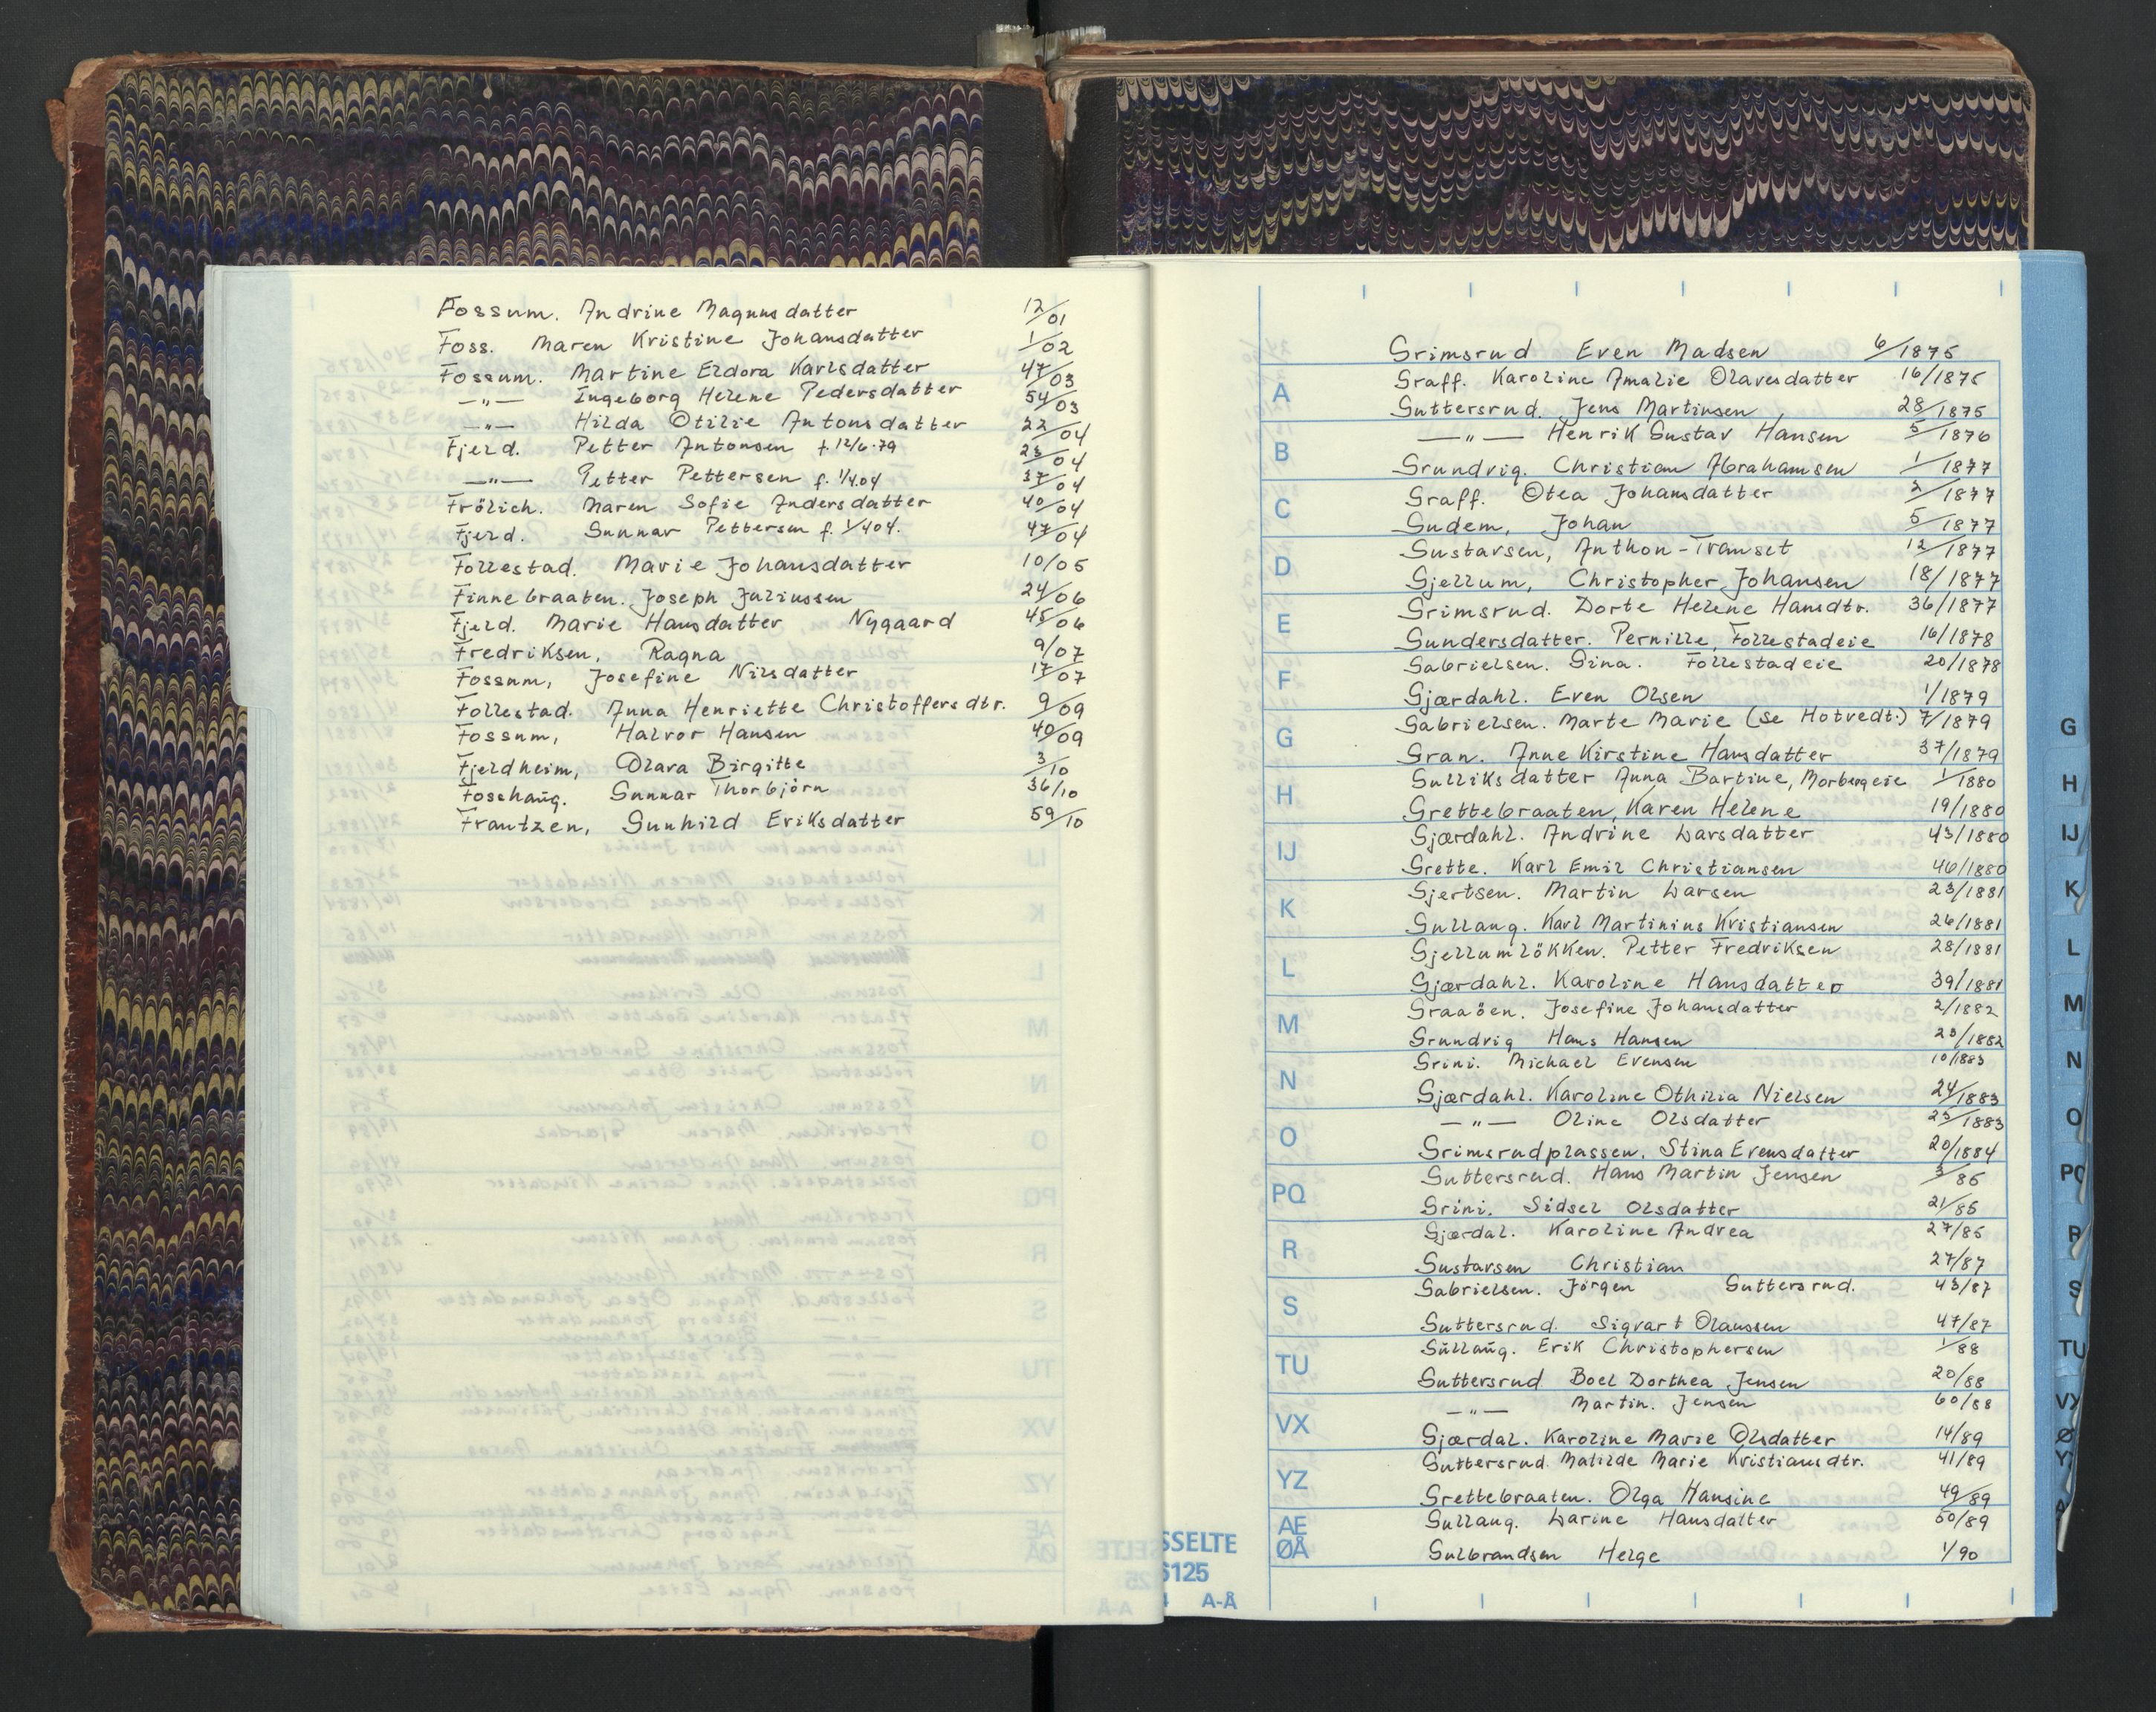 Fossum. Andrine Magnusdatter 12/01
Foss. Maren Kristine Johansdatter 1/02
Fossum. Martine Eldora Karlsdatter 47/03
—"— Ingeborg Helene Pedersdatter 54/03
—"— Hilda Otilie Antonsdatter 22/04
Fjeld. Petter Antonsen f. 12/6-79 23/04
—"— Petter Pettersen f. 1/4 04 37/04
Frölich. Maren Sofie Andersdatter 40/04
Fjeld. Gunnar Pettersen f. 1/4 04. 47/04
Follestad. Marie Johansdatter 10/05
Finnebraaten. Joseph Juliussen 24/06
Fjeld. Marie Hansdatter Nygaard 45/06
Fredriksen, Ragna 9/07
Fossum, Josefine Nilsdatter 17/07
Follestad. Anna Henriette Christoffersdtr. 9/09
Fossum, Halvor Hansen 40/09
Fjeldheim, Olava Birgitte 3/10
Fosshaug. Gunnar Thorbjörn 36/10
Frantzen, Gunhild Eriksdatter 59/10
Grimsrud Even Madsen 6/1875
Graff. Karoline Amalie Olavesdatter 16/1875
Guttersrud. Jens Martinsen 28/1875
—"— Henrik Gustav Hansen 5/1876
Grundvig. Christian Abrahamsen 1/1877
Graff. Otea Johansdatter 2/1877
Gudem, Johan 5/1877
Gustavsen, Anthon-Transet 12/1877
Gjellum, Christopher Johansen 18/1877
Grimsrud. Dorte Helene Hansdtr. 36/1877
Gundersdatter. Pernille, Follestadeie 16/1878
Gabrielsen. Gina. Follestadeie 20/1878
Gjærdahl. Even Olsen 1/1879
Gabrielsen. Marte Marie (se Hotvedt.) 7/1879
Gran. Anne Kirstine Hansdatter 37/1879
Gulliksdatter Anna Bartine, Morbergeie 1/1880
Grettebraaten, Karen Helene 19/1880
Gjærdahl. Andrine Larsdatter 43/1880
Grette. Karl Emil Christiansen 46/1880
Gjertsen. Martin Larsen 23/1881
Gullaug. Karl Martinius Kristiansen 26/1881
Gjellumlökken. Petter Fredriksen 28/1881
Gjærdahl. Karoline Hansdatter 39/1881
Graaöen. Josefine Johansdatter 2/1882
Grundvig Hans Hansen 20/1882
Grini. Michael Evensen 10/1883
Gjærdahl. Karoline Othilia Nielsen 24/1883
—"— Oline Olsdatter 25/1883
Grimsrudplassen. Stina Evensdatter 20/1884
Guttersrud. Hans Martin Jensen 3/86
Grini. Sidsel Olsdatter 21/86
Gjærdal. Karoline Andrea 27/86
Gustavsen Christian 27/87
Gabrielsen. Jörgen Guttersrud. 43/87
Guttersrud. Sigvart Olaussen 47/87
Gullaug. Erik Christophersen 1/88
Guttersrud Boel Dorthea Jensen 20/88
—"— Martin. Jensen 60/88
Gjærdal. Karoline Marie Olsdatter 14/89
Guttersrud. Matilde Marie Kristiansdtr. 41/89
Grettebraaten. Olga Hansine 49/89
Gullaug. Larine Hansdatter 50/89
Gulbrandsen Helge 1/90
A
B
C
D
E
F
G
H
IJ
K
L
M
N
O
PQ
R
S
TU
VX
YZ
AE
ØÅ
SSELTE
6125
A-Å
G
H
IJ
K
L
M
N
O
PQ
R
S
TU
VX